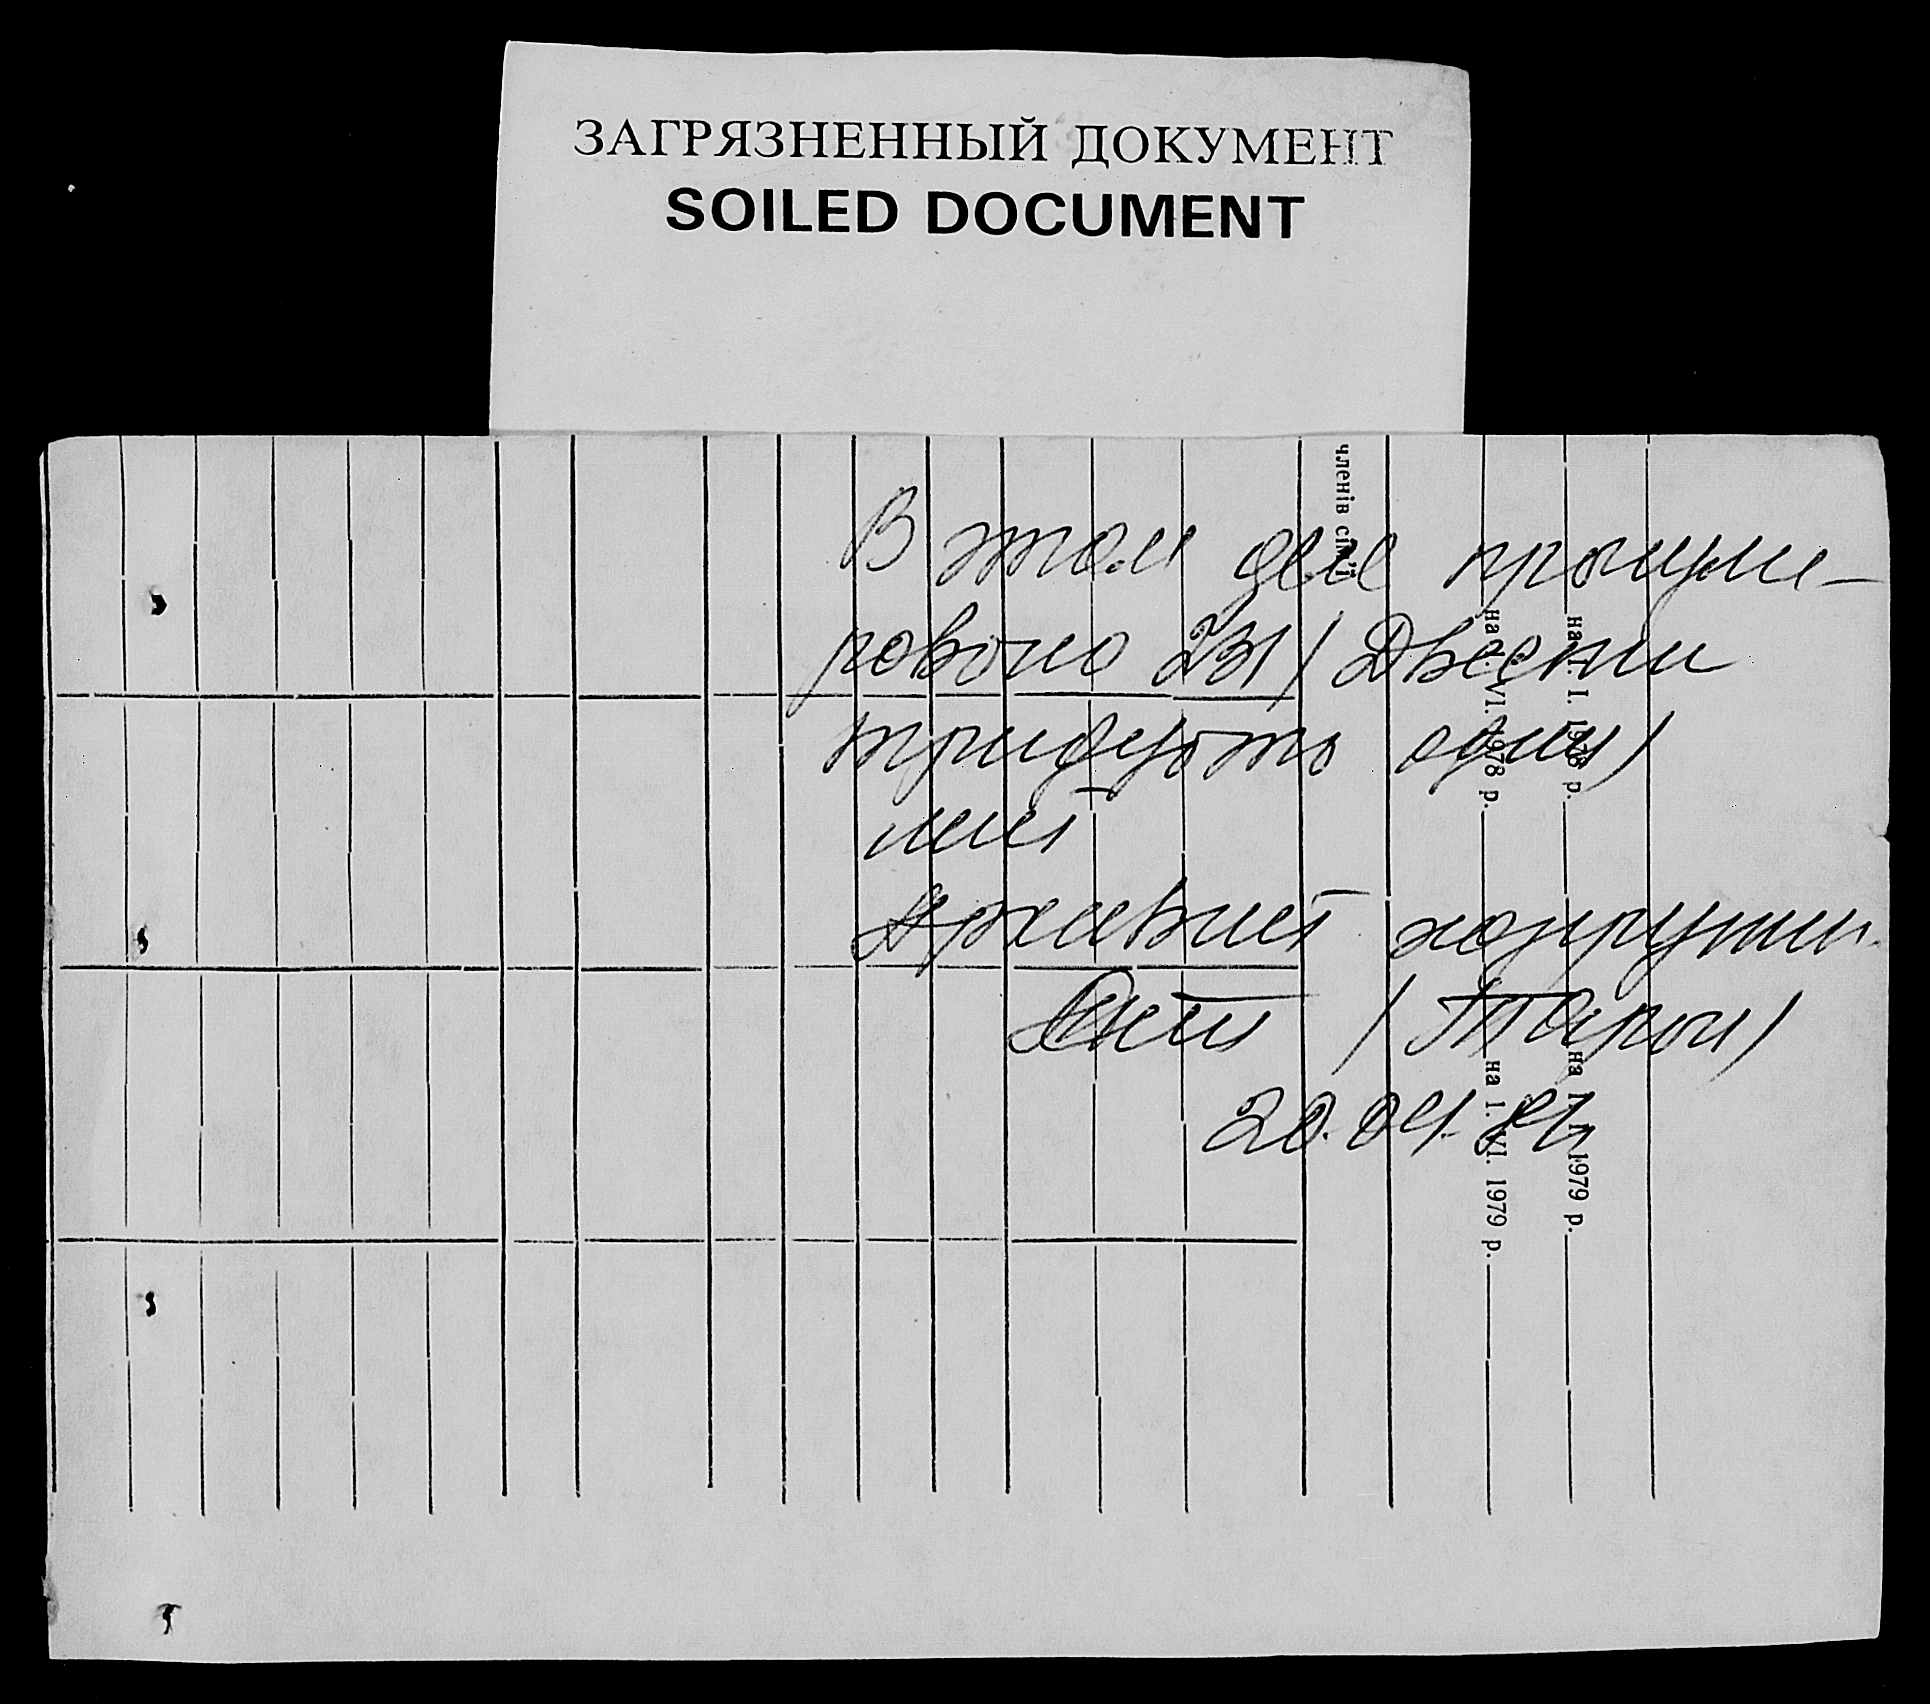 ЗАГРЯЗНЕННЫЙ ДОКУМЕНТ
SOILED DOCUMENT
членів сім'ї
на I. I. 1978 р.
на I. VI. 1978 р.
на I. I. 1979 р.
на I. VI. 1979 р.
В этом деле пронуме-
ровано 231 (Двести
тридцать один)
лист
Архивист
20.04.